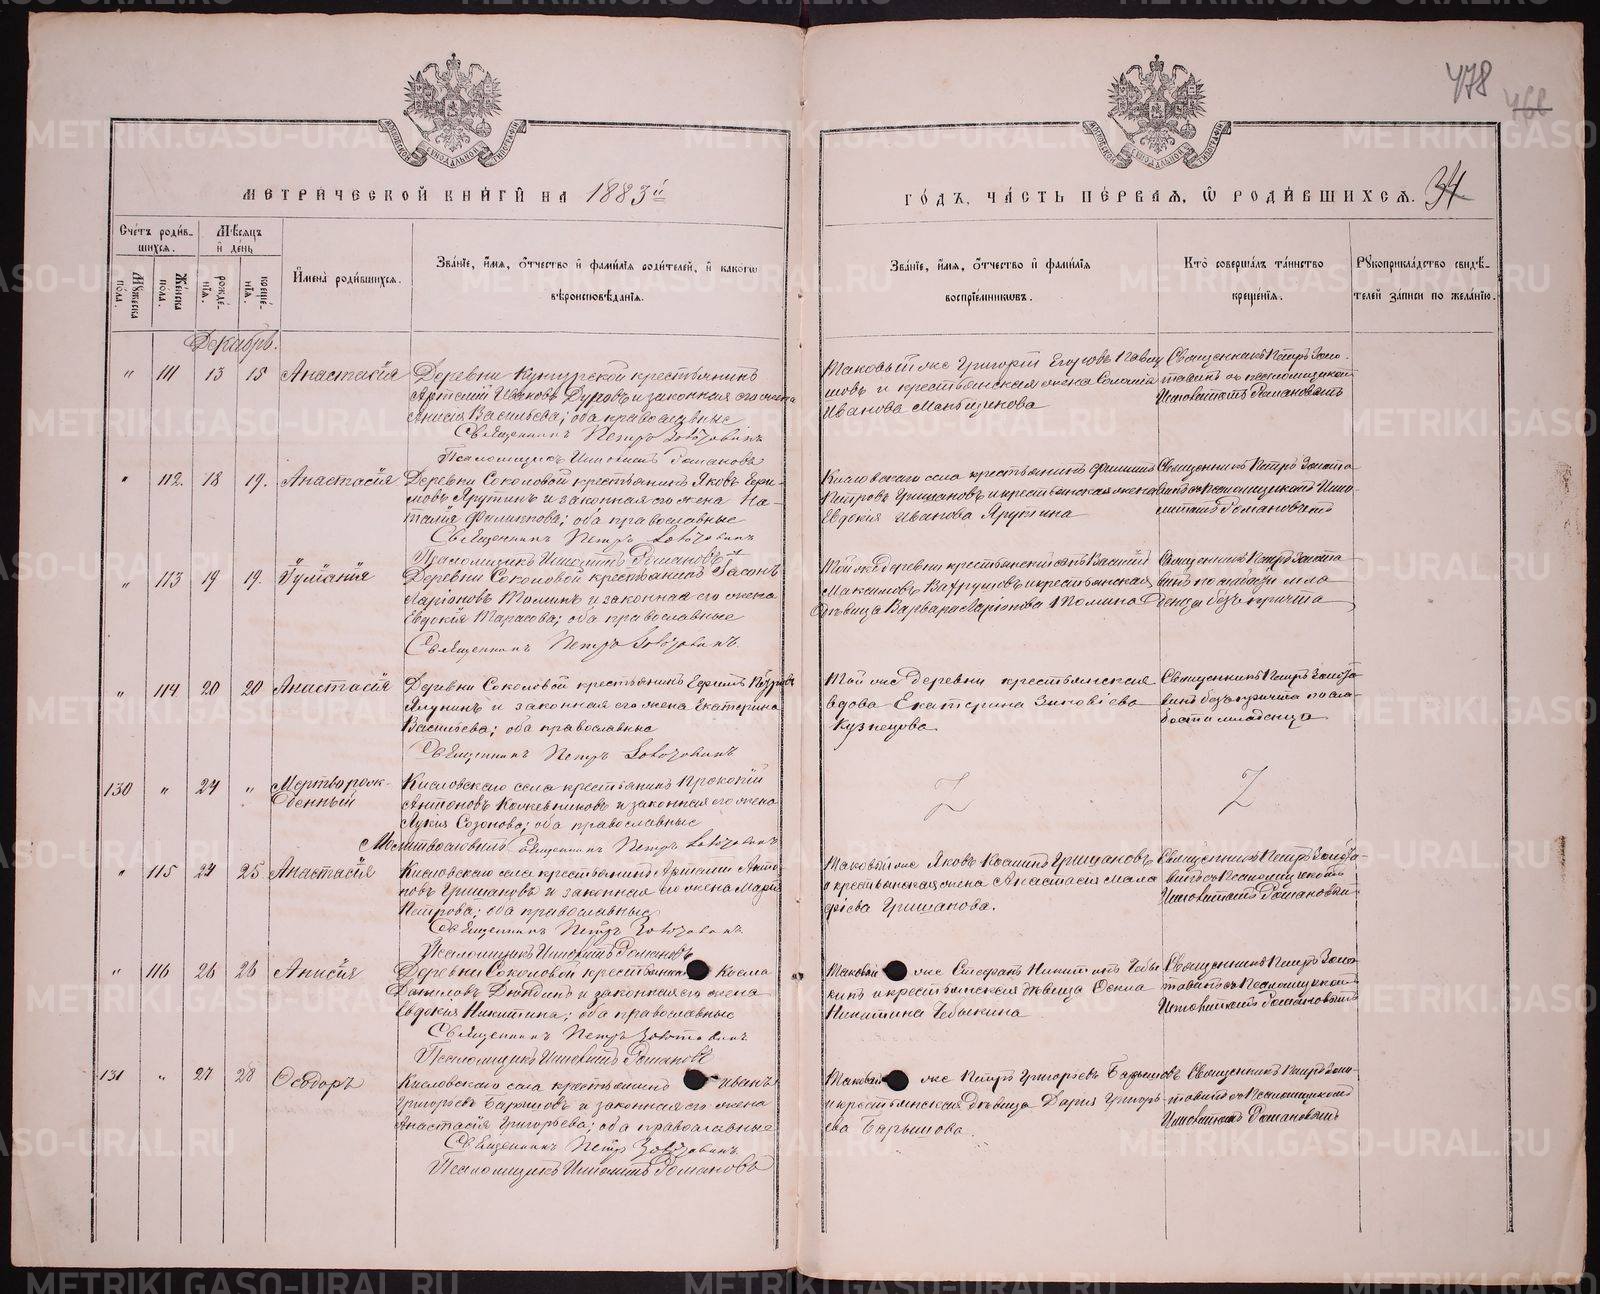 478
466
МЕТРИЧЕСКОЙ КНИГИ НА 1883й
ГОДЪ, ЧАСТЬ ПЕРВАЯ, Ѡ РОДИВШИХСЯ. 34
Счетъ родив-
шихся.
Мѣсяцъ
и день
Мужеска
пола.
Женска
пола.
рожде-
нія.
креще-
нія.
Имена родившихся.
Званіе, имя, отчество и фамилія родителей, и какого
вѣроисповѣданія.
Званіе, имя, отчество и фамилія
воспріемниковъ.
Кто совершалъ таинство
крещенія.
Рукоприкладство свидѣ-
телей записи по желанію.
Декабрь.
" 111 13 15 Анастасія
Деревни крестьянинъ
Артемій Ивановъ Дуровъ и законная его жена
Анисія Васильева; оба православные
Священникъ Петръ Золотавинъ
Псаломщикъ Романовъ
Таковый же Григорій Егоровъ
и крестьянская жена
Иванова Меньщикова
Священникъ Петръ Золо-
тавинъ съ псаломщикомъ
Романовымъ
" 112. 18 19. Анастасія
Деревни Соколовой крестьянинъ Яковъ
Ярутинъ и законная его жена На-
талія Филиппова; оба православные
Священникъ Петръ Золотавинъ
Псаломщикъ Романовъ
Кисловскаго села крестьянинъ Филиппъ
Петровъ Гришановъ и крестьянская жена
Евдокія Иванова Ярутина
Священникъ Петръ Золота-
винъ съ Псаломщикомъ
Романовымъ
" 113 19 19. Іуліанія
Деревни Соколовой крестьянинъ Іасонъ
Ларіоновъ Томинъ и законная его жена
Евдокія Тарасова; оба православные
Священникъ Петръ Золотавинъ.
Той же деревни крестьянскій сынъ Василій
Максимовъ Вахрушовъ и крестьянская
дѣвица Варвара Ларіонова Томина
Священникъ Петръ Золота-
винъ по слабости мла
денца безъ причта
" 114 20 20 Анастасія
Деревни Соколовой крестьянинъ Ефимъ
Ялунинъ и законная его жена Екатерина
Васильева; оба православные
Священникъ Петръ Золотавинъ
Той же деревни крестьянская
вдова Екатерина Зиновіева
Кузнецова
Священникъ Петръ Золота-
винъ безъ причта по сла-
бости младенца
130 " 24 " Мертворож-
денный
Кисловскаго села крестьянинъ Прокопій
Антоновъ Кожевниковъ и законная его жена
Лукія Созонова; оба православные
Молитвословилъ Священникъ Петръ Золотавинъ
" 115 24 25 Анастасія
Кисловскаго села крестьянинъ Артемій Анто-
новъ Гришановъ и законная его жена Марія
Петрова; оба православные
Священникъ Петръ Золотавинъ
Псаломщикъ Романовъ
Таковый же Яковъ Косминъ Гришановъ
и крестьянская жена Анастасія Мала
фіева Гришанова.
Священникъ Петръ Золота-
винъ съ Псаломщикомъ
Романовымъ
" 116 26 26 Анисія
Деревни Соколовой крестьянинъ Косма
Даниловъ и законная его жена
Евдокія Никитина; оба православные
Священникъ Петръ Золотавинъ
Псаломщикъ Романовъ
Таковый же Стефанъ Никитинъ Чебы
кинъ и крестьянская дѣвица
Никитина Чебыкина
Священникъ Петръ Золо-
тавинъ съ Псаломщикомъ
Романовымъ
131 " 27 28 Ѳеодоръ
Кисловскаго села крестьянинъ Иванъ
Григорьевъ Барышовъ и законная его жена
Анастасія Григорьева; оба православные
Священникъ Петръ Золотавинъ
Псаломщикъ Романовъ
Таковый же Петръ Григорьевъ Барышовъ
и крестьянская дѣвица Дарія Григорь-
ева Барышова.
Священникъ Петръ Золо-
тавинъ съ Псаломщикомъ
Романовымъ
METRIKI.GASO-URAL.RU